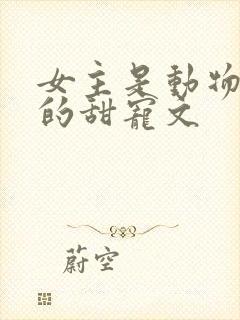 女主是動物
的甜寵文
蔚空